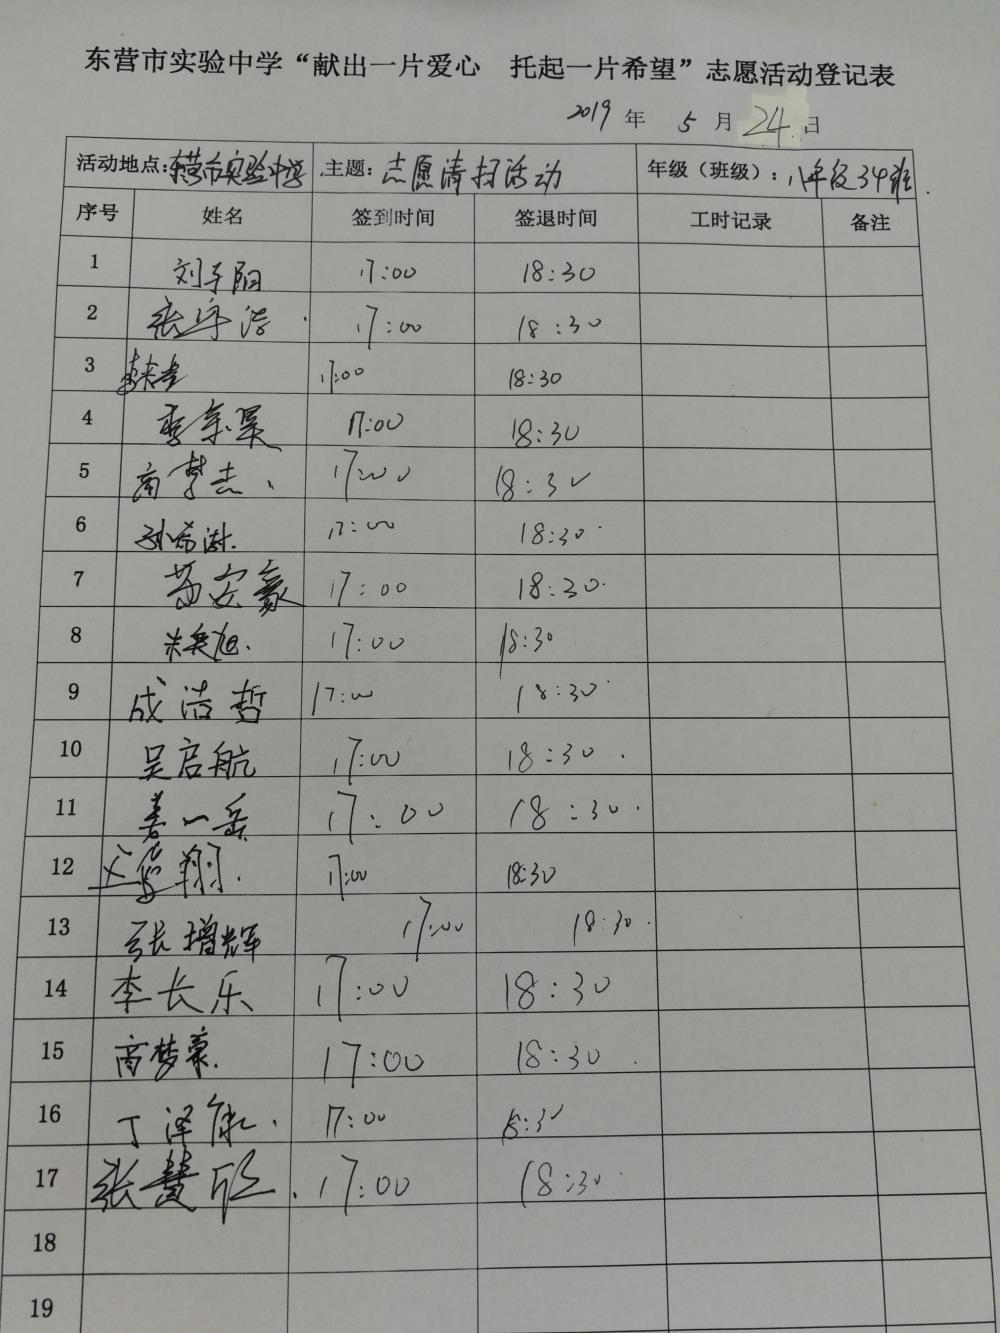 东营市实验中学“献出一片爱心 托起一片希望”志愿活动登记表
2019 年 5 月 24 日
活动地点:东营市实验中学 主题:志愿清扫活动 年级（班级）:八年级34班
序号 姓名 签到时间 签退时间 工时记录 备注
1 刘子阳 17:00 18:30
2 张浩 17:00 18:30
3 17:00 18:30
4 李宗昊 17:00 18:30
5 商梦志 17:00 18:30
6 孙希澍 17:00 18:30
7 苗安豪 17:00 18:30
8 米奕旭 17:00 18:30
9 成浩哲 17:00 18:30
10 吴启航 17:00 18:30
11 姜一岳 17:00 18:30
12 翔 17:00 18:30
13 张增辉 17:00 18:30
14 李长乐 17:00 18:30
15 商梦豪 17:00 18:30
16 丁泽康 17:00 18:30
17 张慧欣 17:00 18:30
18
19